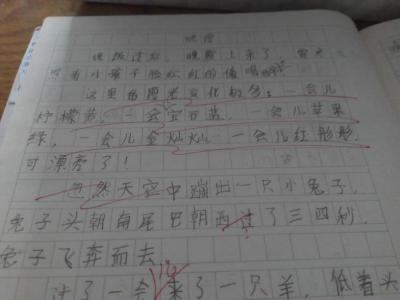 晚霞
晚饭过后，晚霞上来了，霞光
小孩子脸红红的
这里的霞光变化极多：一会儿
柠檬黄，一会宝石蓝，一会儿苹果
绿，一会儿金灿灿，一会儿红彤彤，
可漂亮了！
忽然天空中蹦出一只小兔子，
兔子头朝南尾巴朝西过了三四秒，
兔子飞奔而去
过了一会来了一只羊，低着头